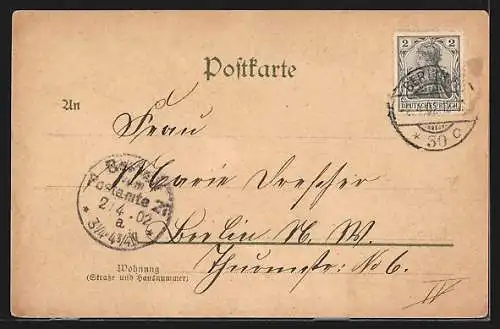 Postkarte
2 2
DEUTSCHES REICH
BERLIN
* 50 c
An
Frau
Marie Drescher
Berlin N. W.
Thurmstr: No 6.
Bestellt
vom
Postamte 21
2/4 02
a
* 3¼-4¾N *
Wohnung
(Straße und Hausnummer)
IV